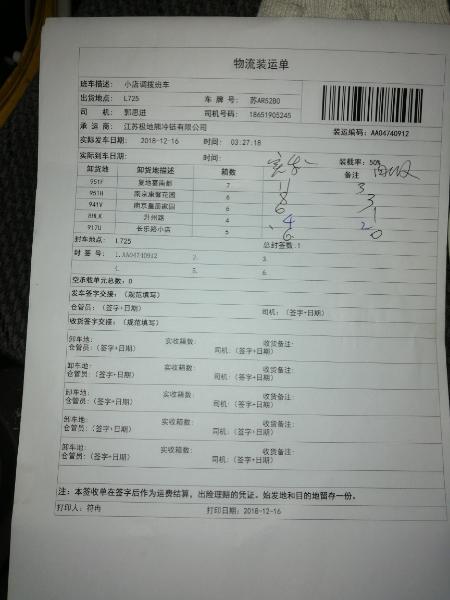 物流装运单
班车描述: 小店调拨班车
出货地点: L725 车 牌 号: 苏AR52B0
司 机: 郭思进 司机号码: 18651905245
承 运 商: 江苏极地熊冷链有限公司 装运编码: AA04740912
实际发车日期: 2018-12-16 时间: 03:27:18
实际到车日期: 时间: 装载率: 50%
卸货地 卸货地描述 箱数 备注
951F 复地宴南都 7 11 3
951H 南京康馨花园 6 8 3
941V 南京皇册家园 6 6 1
8HLK 升州路 4 4 2
917U 长乐路小店 5 6 0
封车地点: L725 总封签数:1
封 签 号: 1.AA04740912 2. 3.
4. 5. 6.
空承载单元总数: 0
发车签字交接: (规范填写)
仓管员: (签字+日期) 司机: (签字+日期)
收货签字交接: (规范填写)
卸车地: 实收箱数: 收货备注:
仓管员: (签字+日期) 司机: (签字+日期)
卸车地: 实收箱数: 收货备注:
仓管员: (签字+日期) 司机: (签字+日期)
卸车地: 实收箱数: 收货备注:
仓管员: (签字+日期) 司机: (签字+日期)
卸车地: 实收箱数: 收货备注:
仓管员: (签字+日期) 司机: (签字+日期)
卸车地: 实收箱数: 收货备注:
仓管员: (签字+日期) 司机: (签字+日期)
注: 本签收单在签字后作为运费结算, 出险理赔的凭证。始发地和目的地留存一份。
打印人: 符冉 打印日期: 2018-12-16